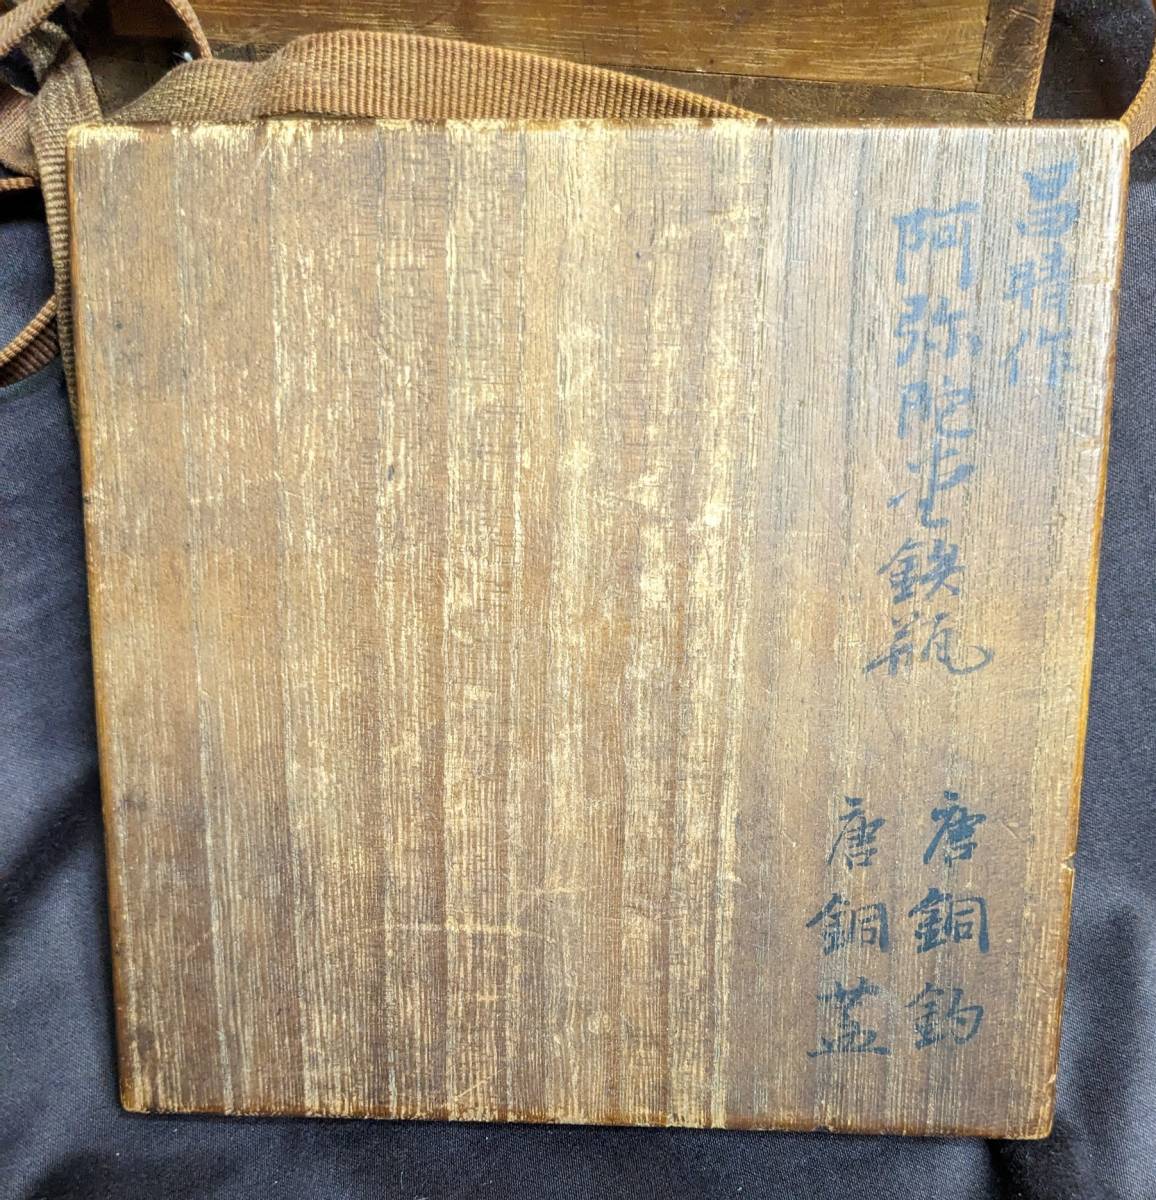 昌晴作
阿弥陀堂鉄瓶
唐銅鈎
唐銅蓋